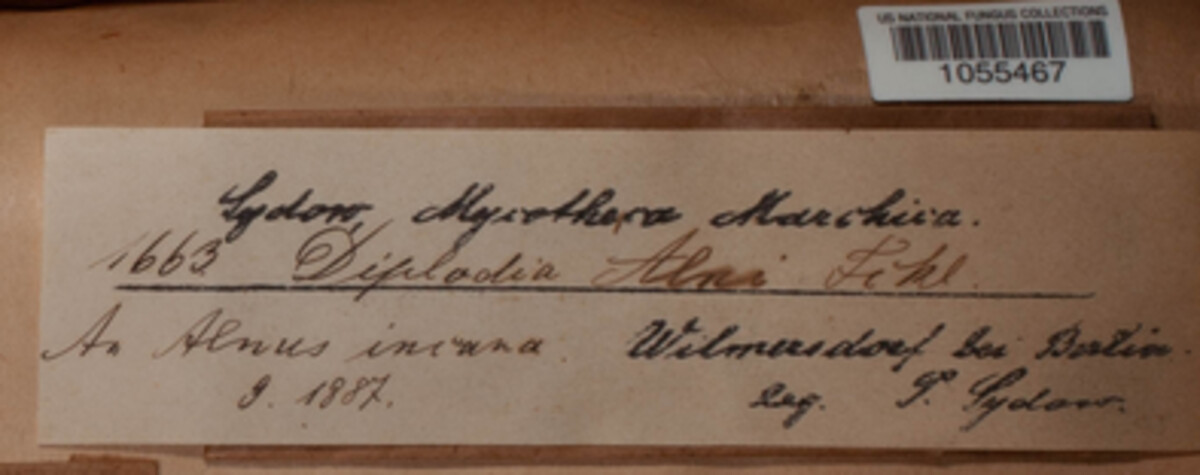 US NATIONAL FUNGUS COLLECTIONS
1055467
Sydow, Mycotheca Marchica.
1663 Diplodia Alni Fckl.
An Alnus incana.
Wilmersdorf bei Berlin.
9. 1887.
Leg. P. Sydow.